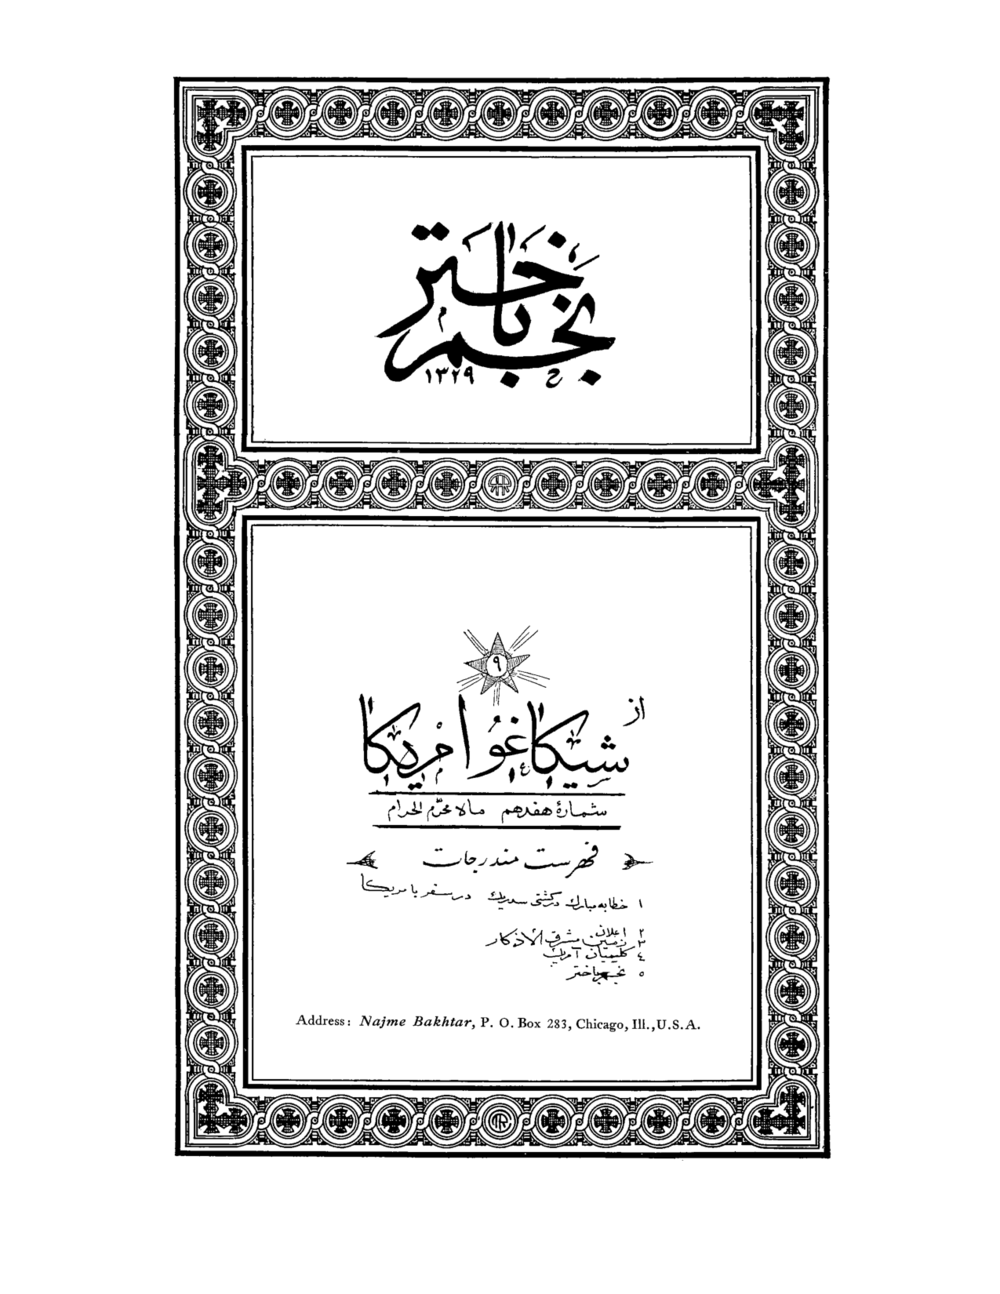 نجم باختر
۱۳۲۹
۹
از
شیکاغو امریکا
شمارهٔ هفدهم ماه محرّم الحرام
فهرست مندرجات
۱ خطابه مبارك در کشتی سدریك در سفر بامریکا
۲ اعلان
۳ زمین مشرق الاذکار
٤ کلیمیان آمریك
٥ نجم باختر
Address: Najme Bakhtar, P. O. Box 283, Chicago, Ill., U.S.A.